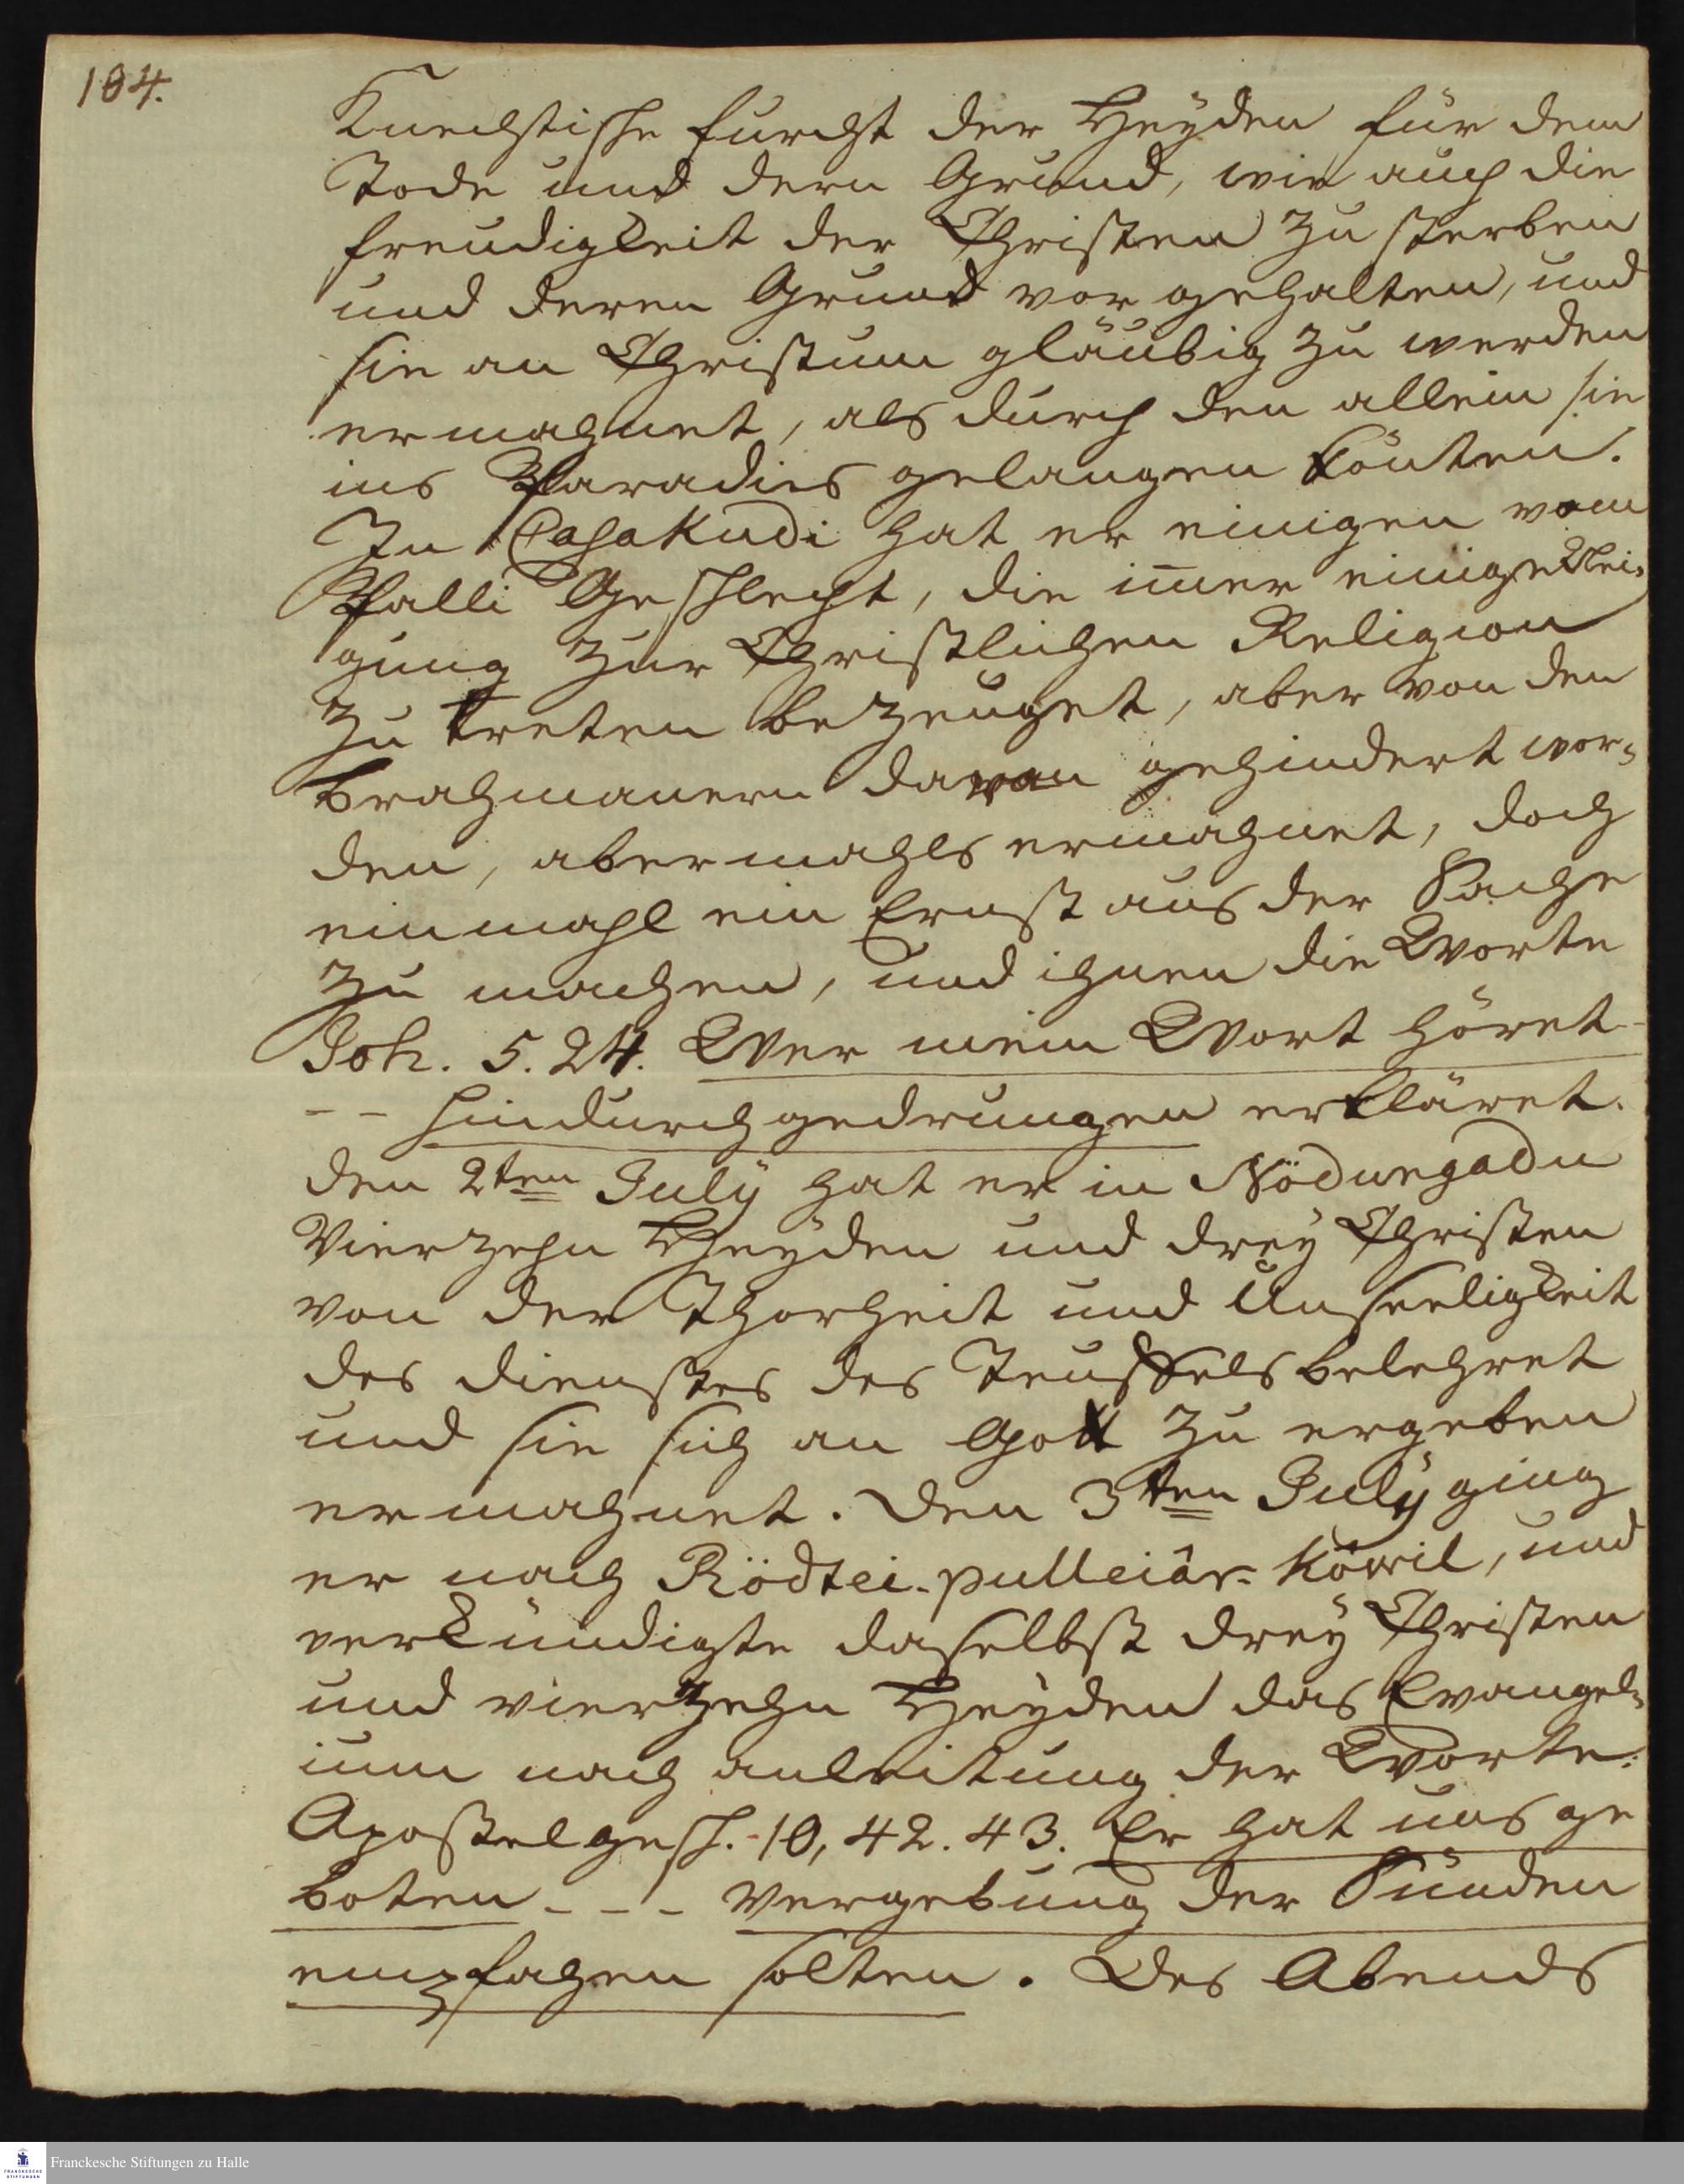 184.
Knechtische Furcht der Heyden für dem
Tode und dern Grund, wie auch die
Freudigkeit der Christen zu sterben
und deren Grund vor gehalten, und
sie an Christum gläubig zu werden
ermahnet, als durch den allein sie
ins Paradies gelangen könten.
In Casakudi hat er einigen vom
Palli Geschlecht, die im̄er einige Nei-
gung zur Christlichen Religion
zu treten bezeuget, aber von den
Brahmanern davon gehindert wor-
den, abermahls ermahnet, doch
einmahl ein Ernst aus der Sache
zu machen, und ihnen die Worte
Joh. 5. 24. Wer mein Wort höret -
- - hindurch gedrungen erkläret.
den 2ten July hat er in Nödungadu
Vierzehn Heyden und drey Christen
von der Thorheit und Unseeligkeit
des Dienstes des Teuffels belehret
und sie sich an Gott zu ergeben
ermahnet. Den 3ten July ging
er nach Rödtei-pulleiâr-kôwil, und
verkündigte daselbst drey Christen
und vierzehn Heyden das Evangel-
ium nach anleitung der Worte:
Apostelgesch. 10, 42. 43. Er hat uns ge
boten - - - Vergebung der Sünden
empfahen solten. Des Abends
Franckesche Stiftungen zu Halle
FRANCKESCHE
STIFTUNGEN